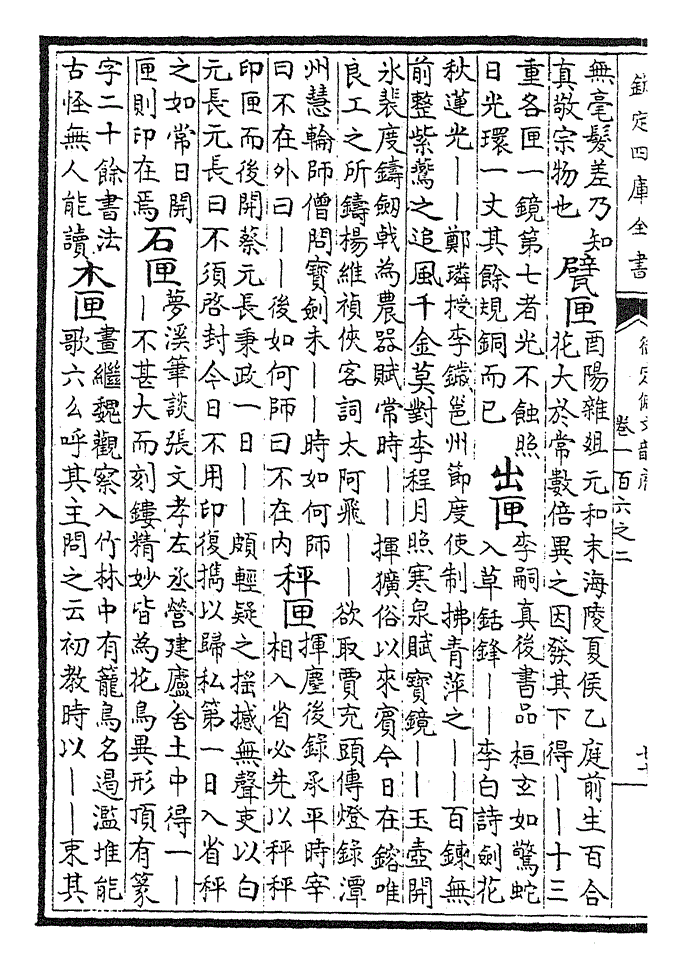 欽定四庫全書
御定佩文韻府
卷一百六之二
無毫髮差乃知
真敬宗物也
甓匣
酉陽雜俎元和末海陵夏侯乙庭前生百合
花大於常數倍異之因發其下得――十三
重各匣一鏡第七者光不蝕照
日光環一丈其餘規銅而已
出匣
李嗣真後書品桓玄如驚蛇
入草銛鋒――李白詩劍花
秋蓮光――鄭璘授李鐬邕州節度使制拂青萍之――百鍊無
前整紫鷰之追風千金莫對李程月照寒泉賦寶鏡――玉壺開
氷裴度鑄劒戟為農器賦常時――揮獷俗以來賓今日在鎔唯
良工之所鑄楊維禎俠客詞太阿飛――欲取賈充頭傳燈錄潭
州慧輪師僧問寶劍未――時如何師
曰不在外曰――後如何師曰不在内
秤匣
揮麈後錄承平時宰
相入省必先以秤秤
印匣而後開蔡元長秉政一日――頗輕疑之揺撼無聲吏以白
元長元長曰不須啓封今日不用印復擕以歸私第一日入省秤
之如常日開
匣則印在焉
石匣
夢溪筆談張文孝左丞營建廬舍土中得一―
―不甚大而刻鏤精妙皆為花鳥異形頂有篆
字二十餘書法
古怪無人能讀
木匣
畫繼魏觀察入竹林中有籠鳥名遏濫堆能
歌六么呼其主問之云初教時以――束其